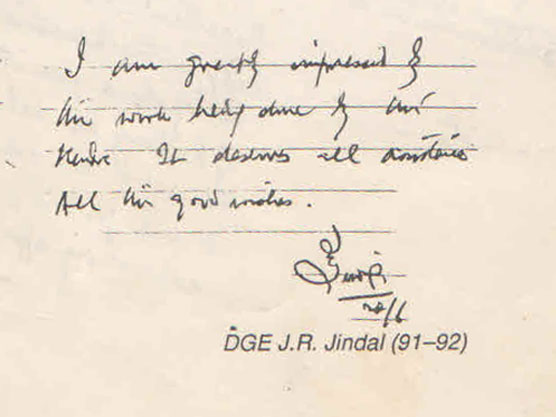 I am greatly impressed by
the work being done by this
Kendra It deserves all assistance
All the good wishes.
20/6
DGE J.R. Jindal (91–92)